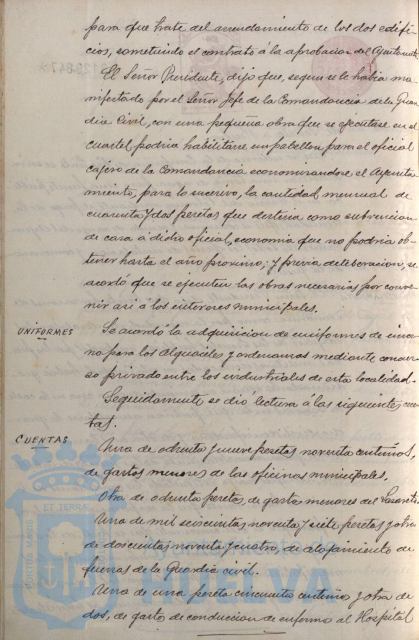 para que trate del arrendamiento de los dos edifi-
cios, sometiendo el contrato á la aprobacion del Ayuntamto
El Señor Presidente, dijo que, segun se le habia ma-
nifestado por el Señor Jefe de la Comandancia de la Guar-
dia Civil, con una pequeña obra que se ejecutase en el
cuartel podria habilitarse un pabellon para el oficial
cajero de la Comandancia economizandose el Ayunta-
miento, para lo sucesivo, la cantidad mensual de
cuarenta y dos pesetas que destina como subvencion
de casa á dicho oficial, economia que no podria ob-
tener hasta el año proximo; y previa deliberacion, se
acordó que se ejecuten las obras necesarias por conve-
nir asi á los intereses municipales.
UNIFORMES
Se acordó la adquisicion de uniformes de invier-
no para los alguaciles y ordenanzas mediante concur-
so privado entre los industriales de esta localidad.
Seguidamente se dió lectura á las siguientes cuen-
tas.
CUENTAS
Una de ochenta y nueve pesetas noventa centimos,
de gastos menores de las oficinas municipales.
Otra de ochenta pesetas, de gastos menores del Lazareto.
Una de mil seiscientas noventa y siete pesetas y otra
de doscientas noventa y cuatro, de alojamiento de
fuerzas de la Guardia civil.
Una de una peseta cincuenta centimos y otra de
dos, de gastos de conduccion de enfermo al Hospital
ET TERRÆ
HUELVA